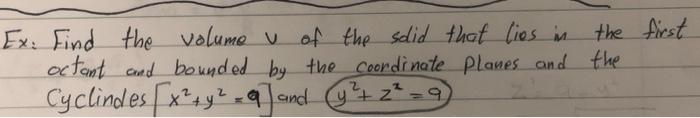 Ex: Find the volume v of the solid that lies in the first
octant and bounded by the coordinate planes and the
Cyclindes [x²+y²=9] and (y²+z²=9)